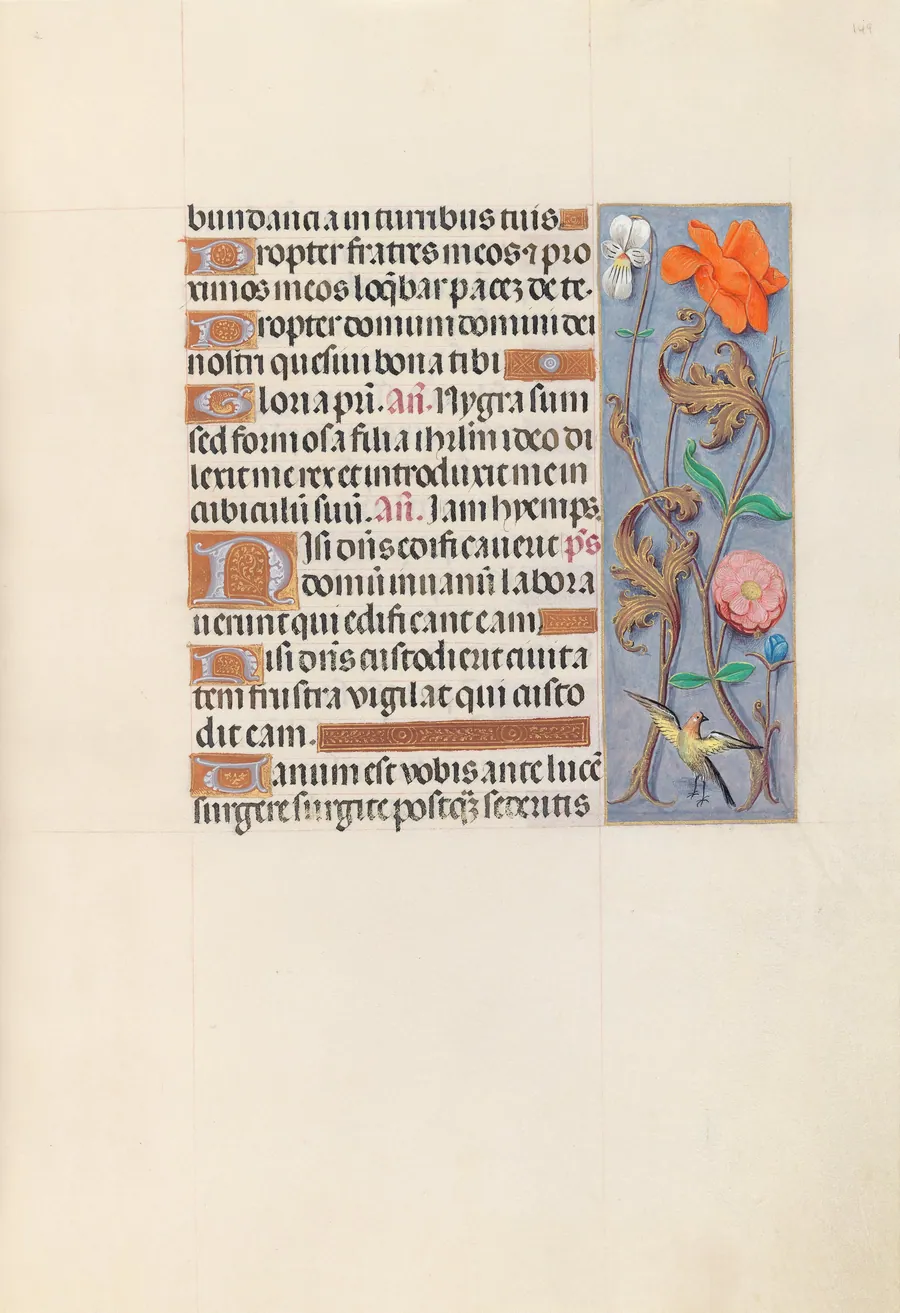 149
bundancia in turribus tuis
Propter fratres meos ⁊ pro
ximos meos loq̄bar paceʒ de te.
Propter domum domini dei
nostri quesiui bona tibi
Gloria pr̄i. An̄. Nygra sum
sed formosa filia ihrl̄m ideo di
lexit me rex et introduxit me in
cubiculū suū. An̄. Jam hyemps.
Nisi dn̄s edificauerit p̄s
domū in uanū labora
uerunt qui edificant eam.
Nisi dn̄s custodierit ciuita
tem frustra vigilat qui custo
dit eam.
Uanum est vobis ante lucē
surgere surgite postqʒ̄ sederitis